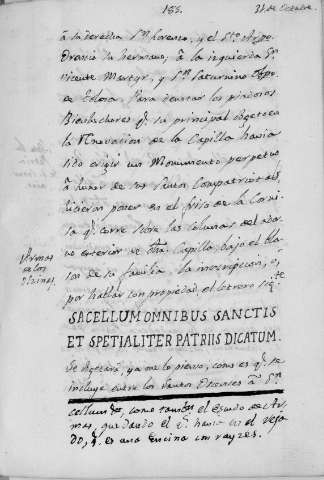 185.
31 de Octubre.
à la derecha Sn. Lorenzo, y el Sto. Arzo-
bravio su hermano, à la izquierda Sn.
Vicente Martyr, y Sn. Saturnino Obpo.
de Tolosa. Para denotar los piadosos
Bienhechores q. su principal objeto en
la renovacion de la Capilla havia
sido erigir un Monumento perpetuo
à honor de sus Santos Compatriotas,
hicieron poner en el friso de la Corni-
sa q. corre sobre las colunas del ador-
no exterior de dha. Capilla bajo el Bla-
son de su familia, la inscripcion, ò,
por hablar con propiedad el letrero sigte.
Armas
de los
SACELLUM OMNIBUS SANCTIS
ET SPETIALITER PATRIIS DICATUM.
incluye entre los Santos
cellum como tambien el Escudo de Ar-
mas, quedando el q. havia en el viejo
do, q. es una encina con rayzes.